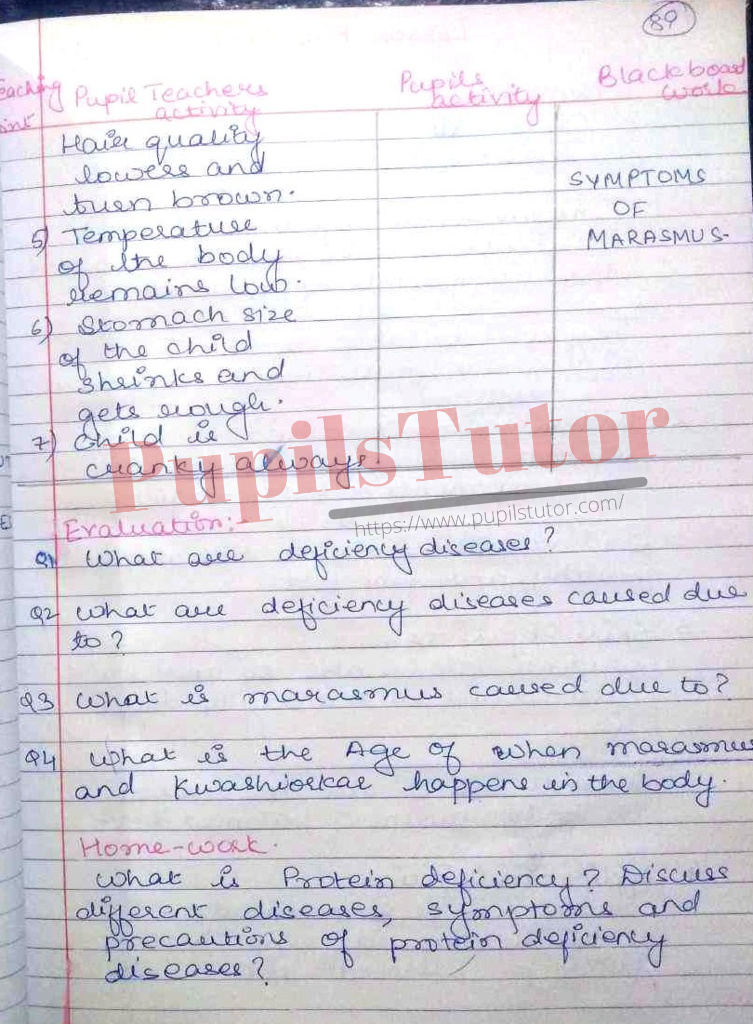 89
eaching Pupil Teachers Pupils Blackboard
oint activity activity work
Hair quality
lowers and
turn brown.
SYMPTOMS
OF
MARASMUS-
5) Temperature
of the body
remains low.
6) Stomach size
of the child
shrinks and
gets rough.
7) Child is
cranky always.
PupilsTutor
https://www.pupilstutor.com/
Evaluation:-
Q1 What are deficiency diseases?
Q2 What are deficiency diseases caused due
to?
Q3 What is marasmus caused due to?
Q4 What is the Age of when marasmus
and Kwashiorkar happens in the body.
Home-work.
What is Protein deficiency? Discuss
different diseases, symptoms and
precautions of protein deficiency
diseases?